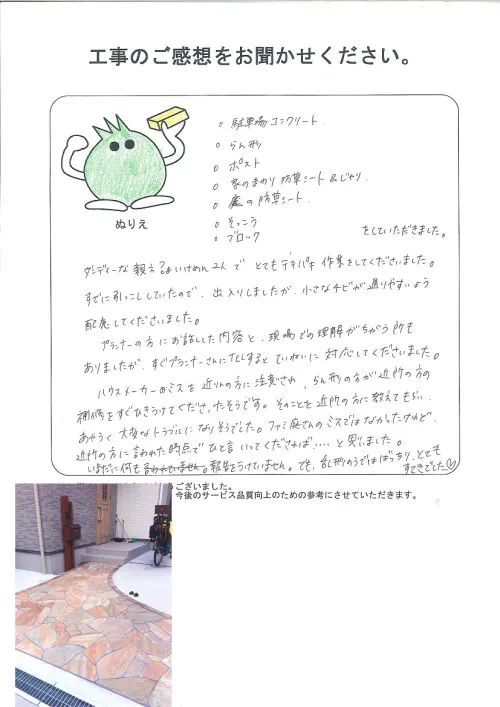 工事のご感想をお聞かせください。
ぬりえ
○ 駐車場コンクリート.
○ らん形
○ ポスト
○ 家のまわり 防草シート & じゃり.
○ 庭の防草シート.
○ そっこう
○ ブロック
をしていただきました。
ダンディーな親方&いけめん2人で とてもテキパキ作業をしてくださいました。
すでに引っこししていたので、出入りしましたが、小さなチビが通りやすいよう
配慮してくださいました。
プランナーの方にお話しした内容と、現場での理解がちがう所も
ありましたが、すぐプランナーさんにTELするとていねいに対応してくださいました。
ハウスメーカーのミスを近りんの方に注意され、らん形の方が近所の方の
補修をすぐひきうけてくださったそうです。そのことを近所の方に教えてもらい、
あやうく大変なトラブルになりそうでした。ファミ庭さんのミスではなかったけれど、
近所の方に言われた時点でひと言いってくだされば‥‥と思いました。
いまだに何も 報告をうけていません。でも、乱形のうではばっちり、とても
すてきでした♡
ございました。
今後のサービス品質向上のための参考にさせていただきます。